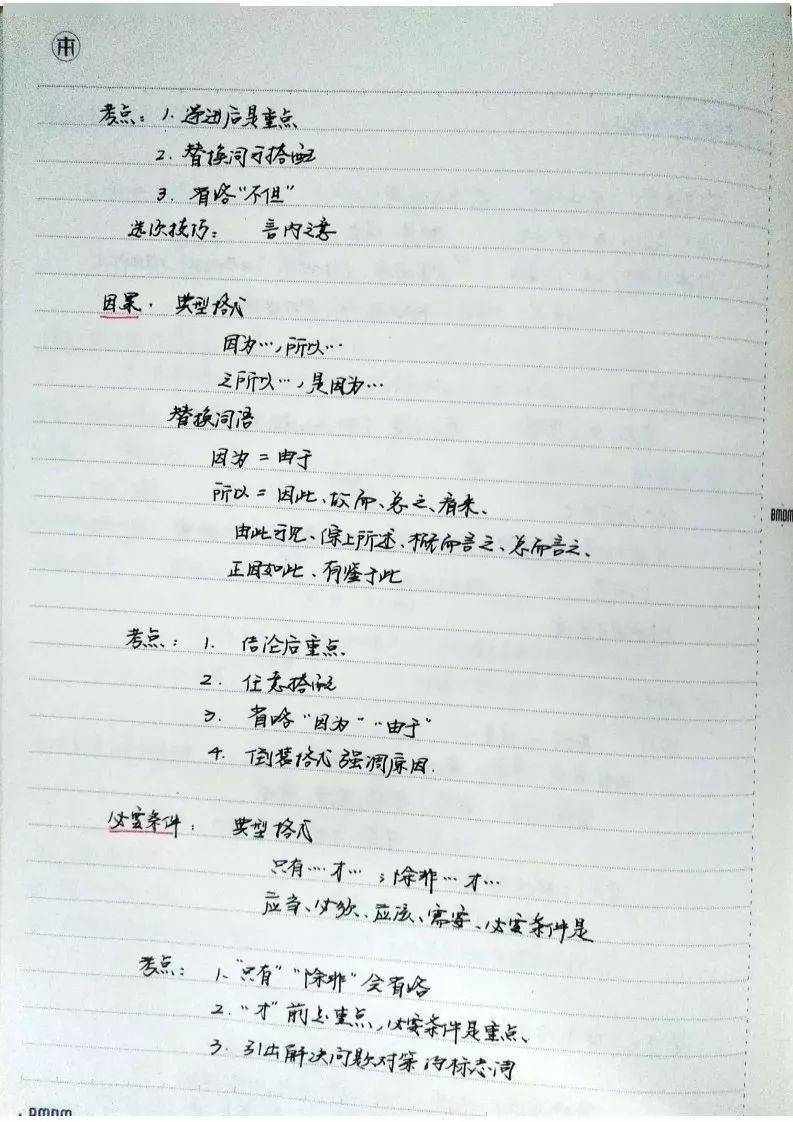 考点：1. 递进后是重点
2. 替换词可搭配
3. 省略"不但"
选项技巧： 言内之意
因果. 典型格式
因为…，所以…
之所以…，是因为…
替换词语
因为 = 由于
所以 = 因此、故而、总之、看来、
由此可见、综上所述、概而言之、总而言之、
正因如此、有鉴于此
考点： 1. 结论后重点、
2. 任意搭配
3. 省略"因为""由于"
4. 倒装格式强调原因.
必要条件： 典型格式
只有…才…；除非…才…
应当、必须、应该、需要、必要条件是
考点： 1、"只有""除非"会省略
2."才"前是重点，必要条件是重点、
3. 引出解决问题对策的标志词
BMDM
BMDM